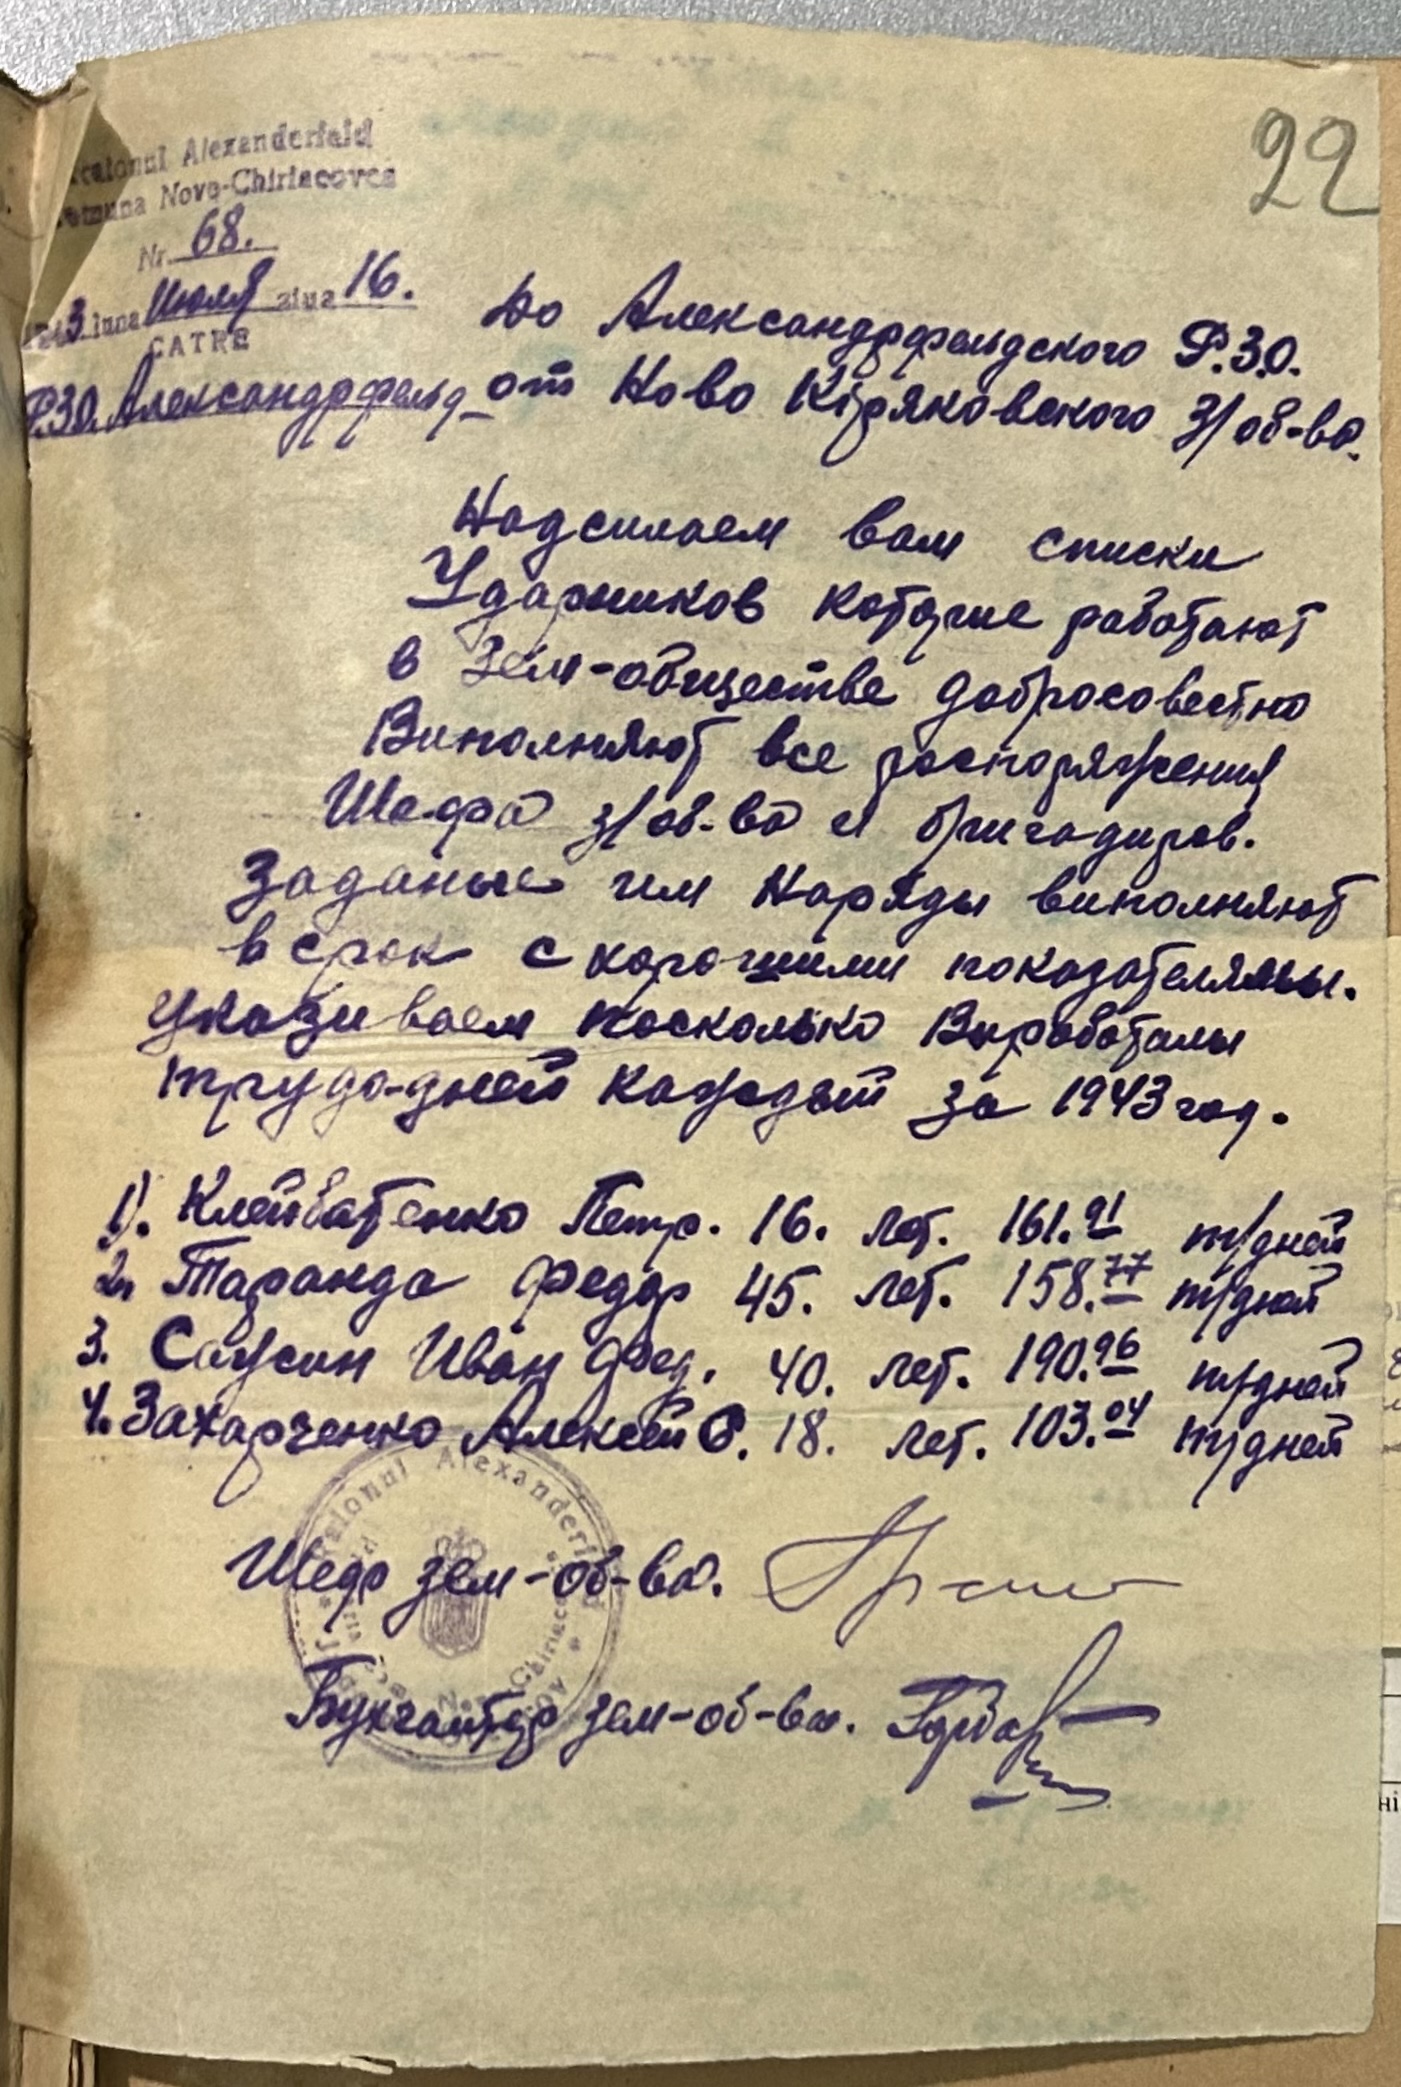 22
Raionul Alexanderfeld
Comuna Novo-Chiriacovca
Nr. 68.
1943 luna Июля ziua 16.
CATRE
Р.З.О. Александрфельд
До Александрфельдского Р.З.О.
от Ново Кіряковского З/об-ва.
Надсилаем вам списки
Ударников которие работают
в Зем-обществе добросовестно
Виполняют все роспоряжения
Шефа з/об-ва и бригадиров.
Заданые им Наряды виполняют
в срок с хорошими показателямы.
Указиваем посколько Виработалы
трудо-дней каждый за 1943 год.
1). Клейватенко Петр. 16. лет. 161.91 т/дней
2. Таранда Федор 45. лет. 158.77 т/дней
3. Саусин Иван Фед. 40. лет. 190.96 т/дней
4. Захарченко Алексей С. 18. лет. 103.04 т/дней
Raionul Alexanderfeld
Шеф зем-об-ва.
Бухгалтер зем-об-ва.